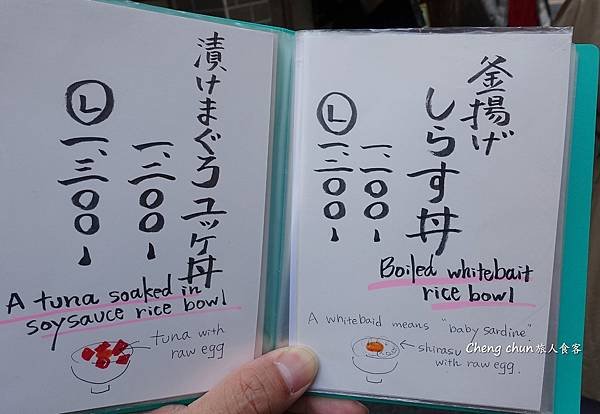 漬けまぐろユッケ丼
一、一〇〇-
Ⓛ 一、三〇〇-
A tuna soaked in
soysauce rice bowl
tuna with
raw egg
釜揚げ
しらす丼
一、一〇〇-
Ⓛ 一、三〇〇-
Boiled whitebait
rice bowl
A whitebaid means "baby sardine".
shirasu
with raw egg.
Cheng chun旅人食客